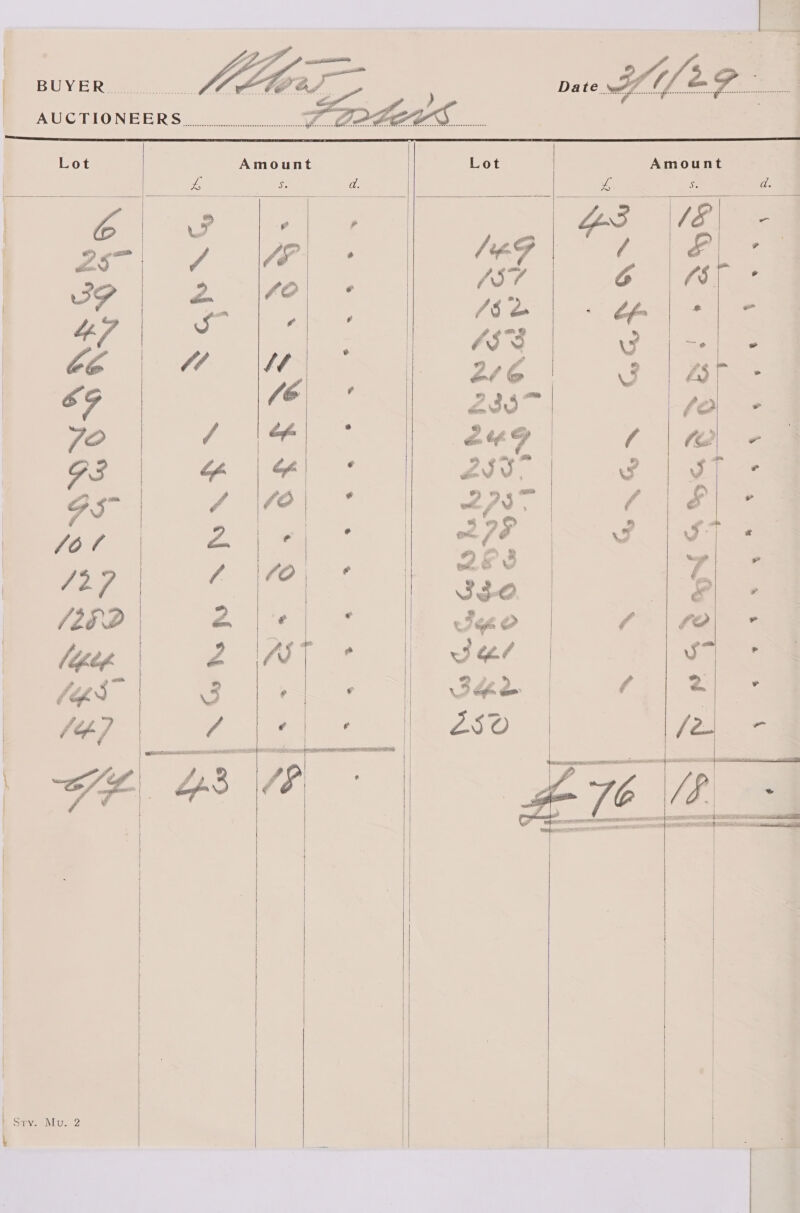 BUYER
Date 3/1/29
AUCTIONEERS Fosters
Lot Amount Lot Amount
£ s. d. £ s. d.
6 3 " " 43 18 -
25 1 18 " 149 1 8 "
39 2 10 " 151 6 15 "
47 5 " " 152 4 " -
66 11 11 " 153 3 - "
69 16 " 216 3 15 "
70 1 4 " 235 10 "
93 4 4 " 249 1 10 -
95 1 10 " 255 3 5 "
101 2 " " 275 1 8 "
127 1 10 " 278 3 5 "
128D 2 " " 283 7 "
144 2 15 " 330 8 "
145 3 " " 340 1 10 "
147 1 " " 341 5 "
342 1 2 "
250 12 -
C/F 43 18 "
£ 76 18 "
Sty. Mu. 2